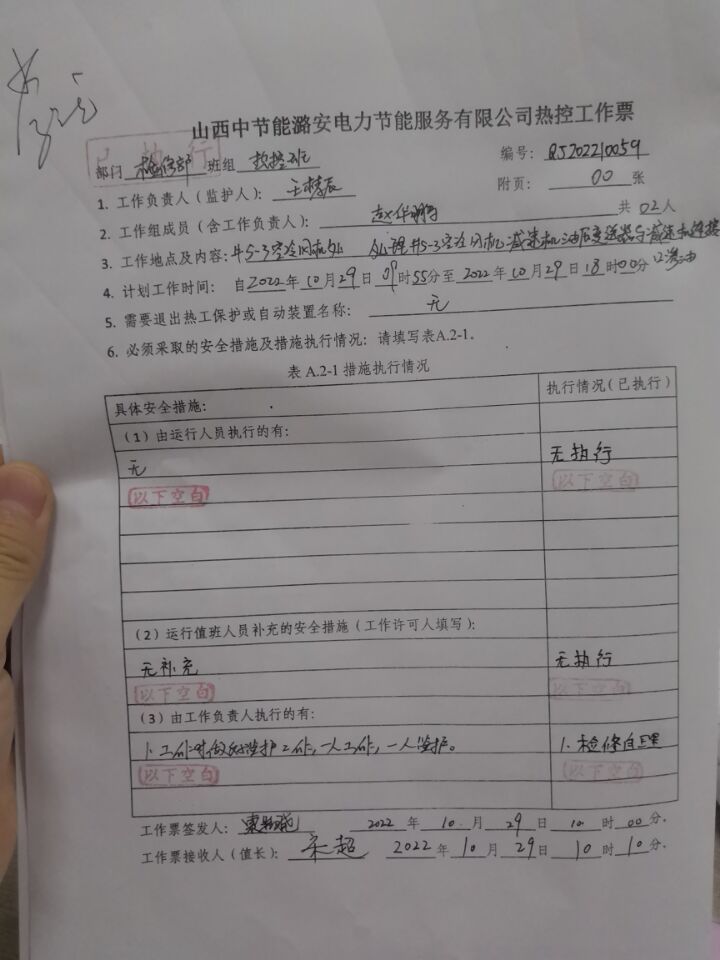 山西中节能潞安电力节能服务有限公司热控工作票
已执行
部门 检修部 班组 热控班 编号: RJ202210059
附页: 00 张
1. 工作负责人(监护人):
2. 工作组成员(含工作负责人): 共 02 人
3. 工作地点及内容: #5-3空冷风机处 处理#5-3空冷风机减速机油压变送器与减速机连接
口渗油
4. 计划工作时间: 自 2022 年 10 月 29 日 09 时 55 分至 2022 年 10 月 29 日 18 时 00 分
5. 需要退出热工保护或自动装置名称: 无
6. 必须采取的安全措施及措施执行情况: 请填写表A.2-1.
表 A.2-1 措施执行情况
具体安全措施: 执行情况(已执行)
(1)由运行人员执行的有:
无 无执行
以下空白 以下空白
(2)运行值班人员补充的安全措施(工作许可人填写):
无补充 无执行
以下空白 以下空白
(3)由工作负责人执行的有:
1. 工作时做好监护工作,一人工作,一人监护。 1. 检修自理
以下空白 以下空白
工作票签发人: 2022 年 10 月 29 日 10 时 00 分.
工作票接收人(值长): 宋超 2022 年 10 月 29 日 10 时 10 分.